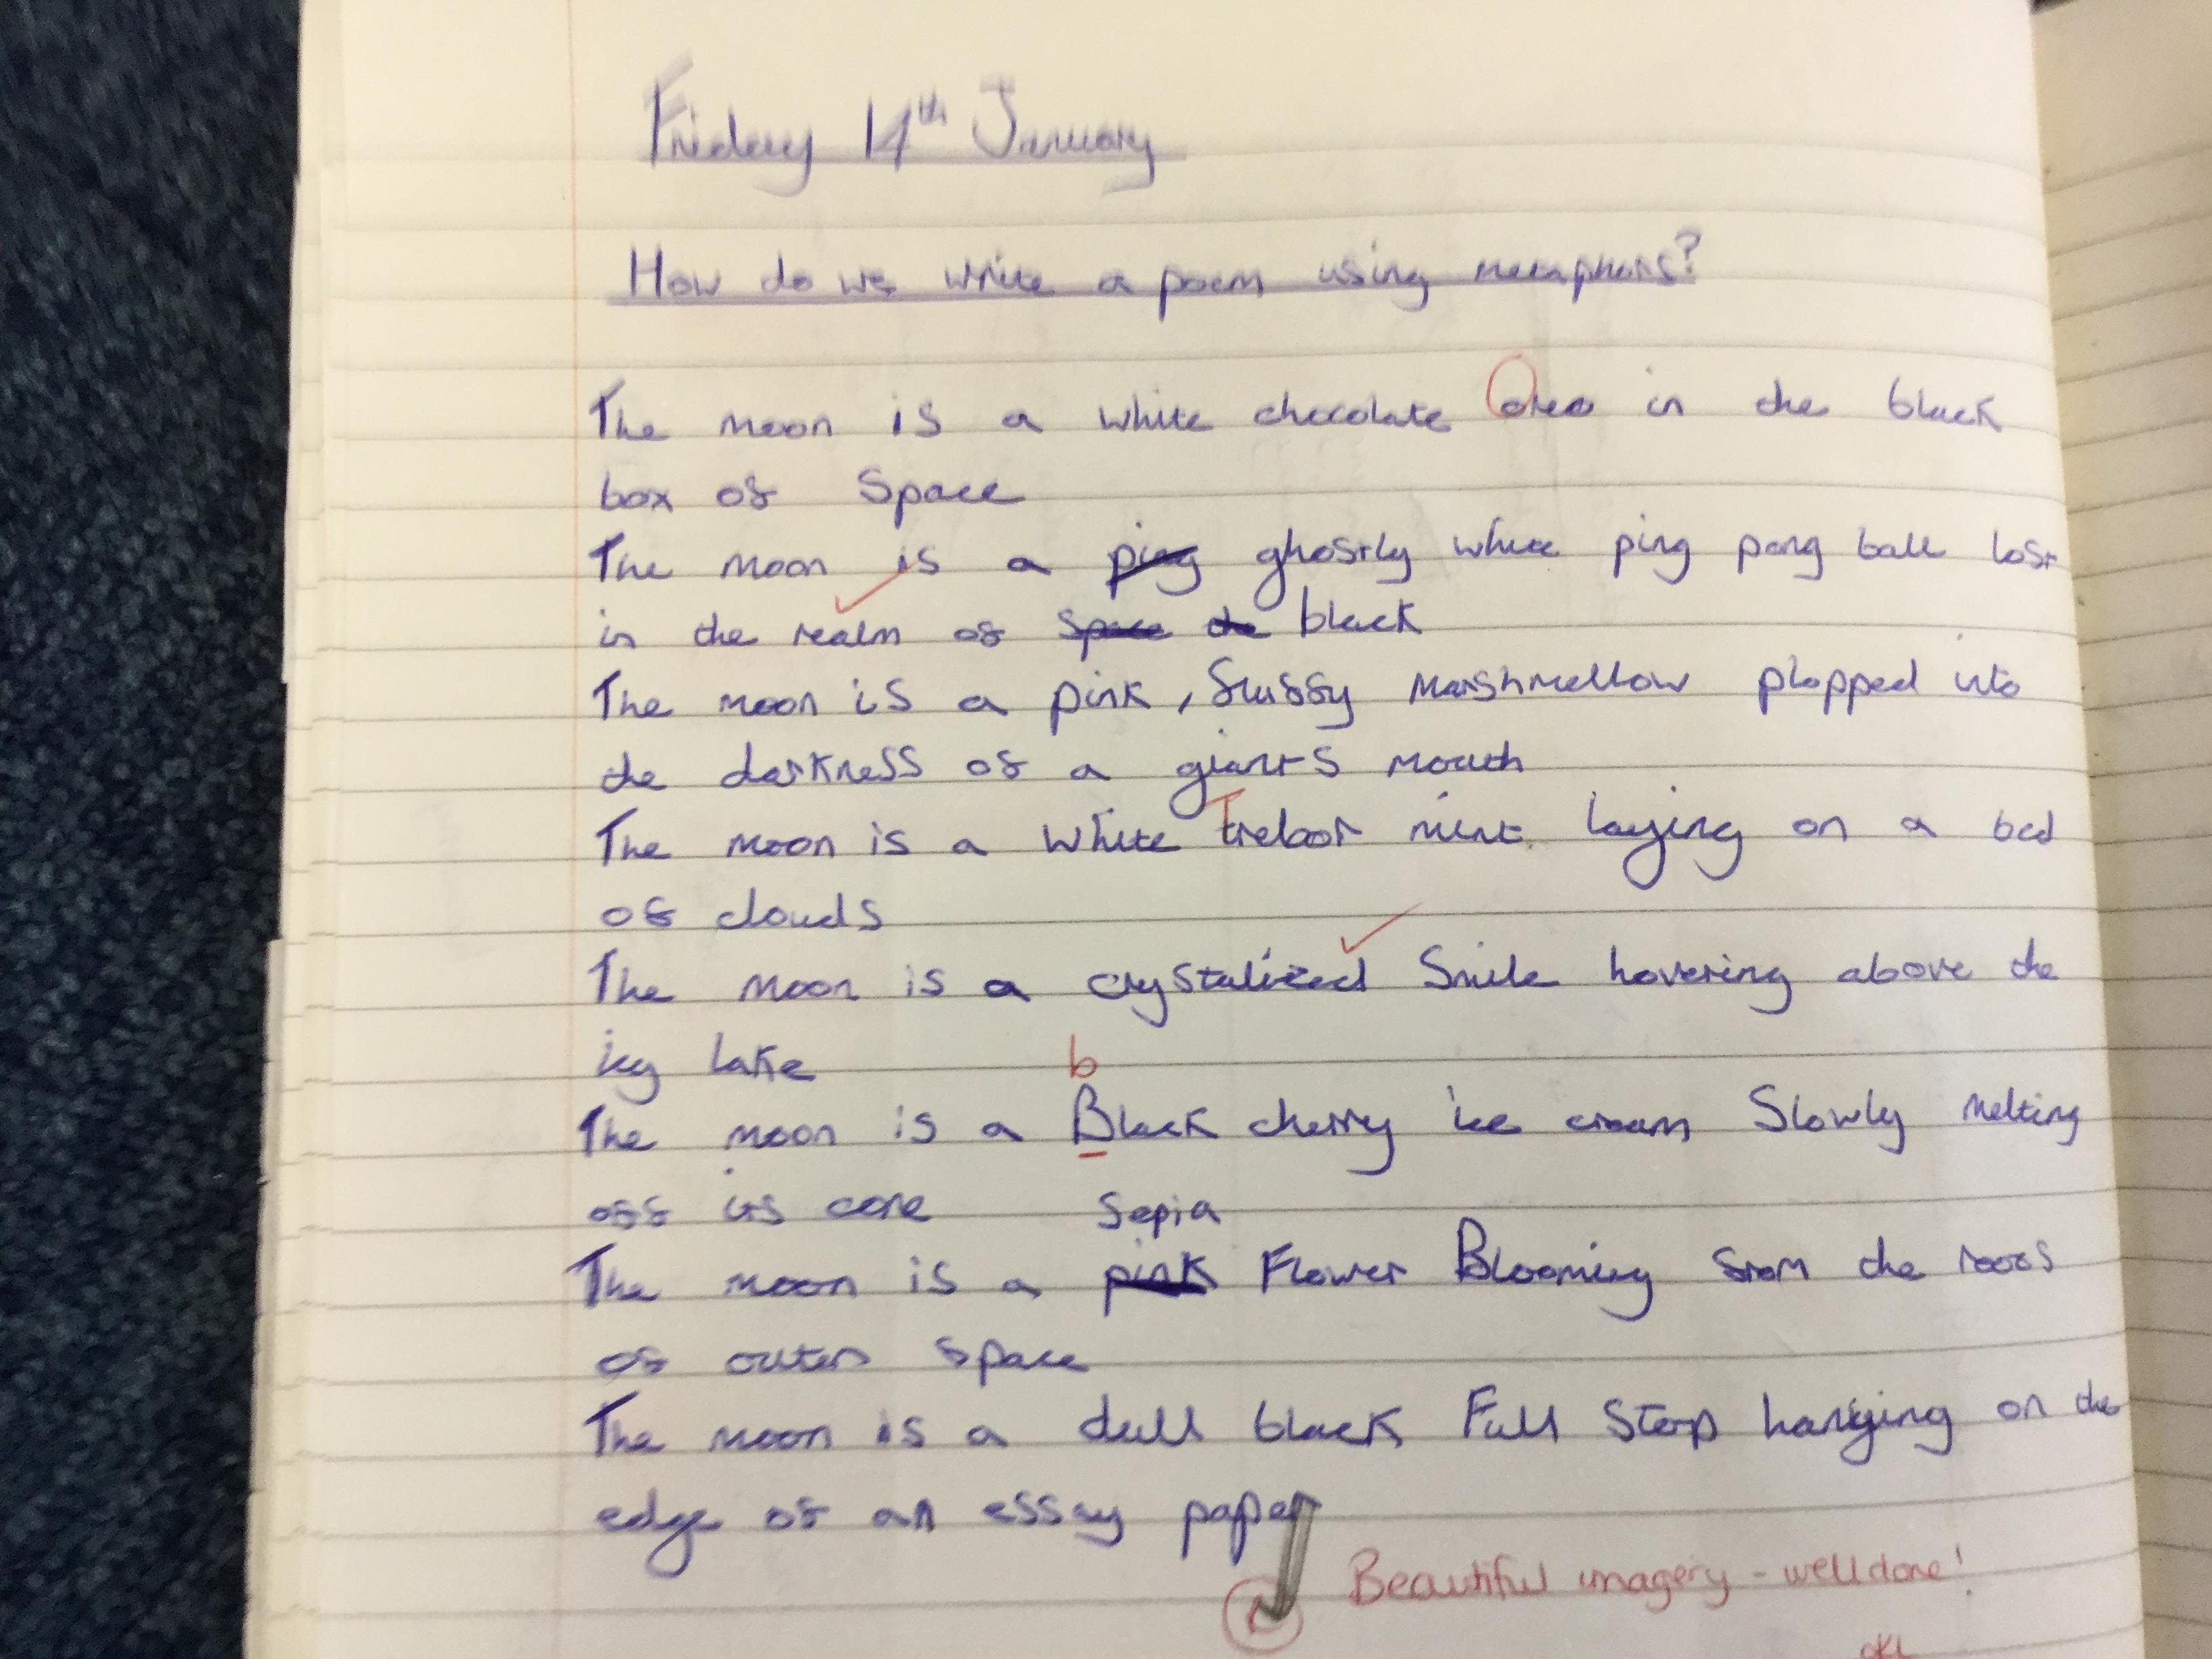 Friday 14th January
How do we write a poem using metaphors?
The moon is a white chocolate Oreo in the black
box of Space
The moon is a ping ghostly white ping pong ball lost
in the realm of space the black
The moon is a pink, fluffy marshmellow plopped into
the darkness of a giants mouth
The moon is a white Trebor mint laying on a bed
of clouds
The moon is a crystalized Smile hovering above the
icy lake
b
The moon is a Black cherry ice cream Slowly melting
off its cone
Sepia
The moon is a pink Flower Blooming from the roots
of outer space
The moon is a dull black Full Stop hanging on the
edge of an essay paper
Beautiful imagery - well done!